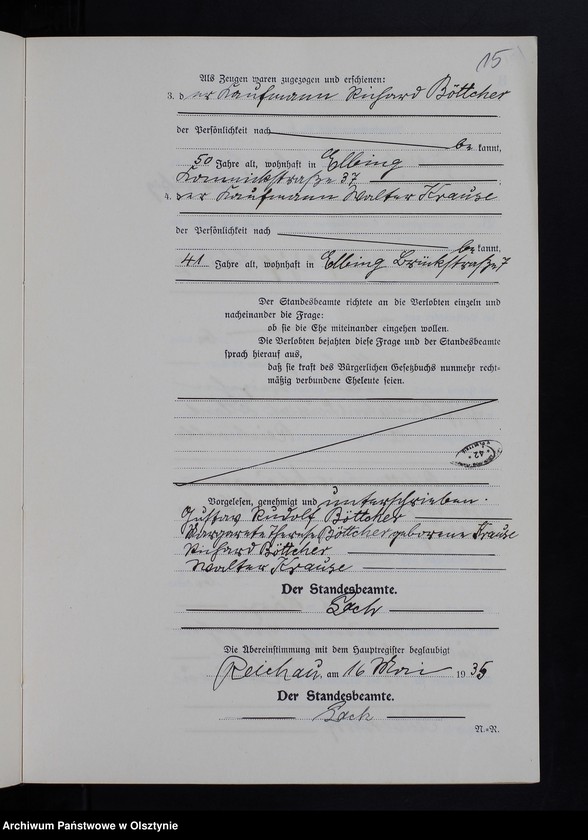 15
Als Zeugen waren zugezogen und erschienen:
3. der Kaufmann Richard Böttcher
der Persönlichkeit nach bekannt,
50 Jahre alt, wohnhaft in Elbing
Komnickstraße 37
4. der Kaufmann Walter Krause
der Persönlichkeit nach bekannt,
41 Jahre alt, wohnhaft in Elbing Brückstraße 7
Der Standesbeamte richtete an die Verlobten einzeln und
nacheinander die Frage:
ob sie die Ehe miteinander eingehen wollen.
Die Verlobten bejahten diese Frage und der Standesbeamte
sprach hierauf aus,
daß sie kraft des Bürgerlichen Gesetzbuchs nunmehr recht-
mäßig verbundene Eheleute seien.
Vorgelesen, genehmigt und unterschrieben.
Gustav Rudolf Böttcher
Margarete Böttcher geborene Krause
Richard Böttcher
Walter Krause
Der Standesbeamte.
Die Übereinstimmung mit dem Hauptregister beglaubigt
Reichau, am 16 Mai 1935
Der Standesbeamte.
N.-N.
Archiwum Państwowe w Olsztynie